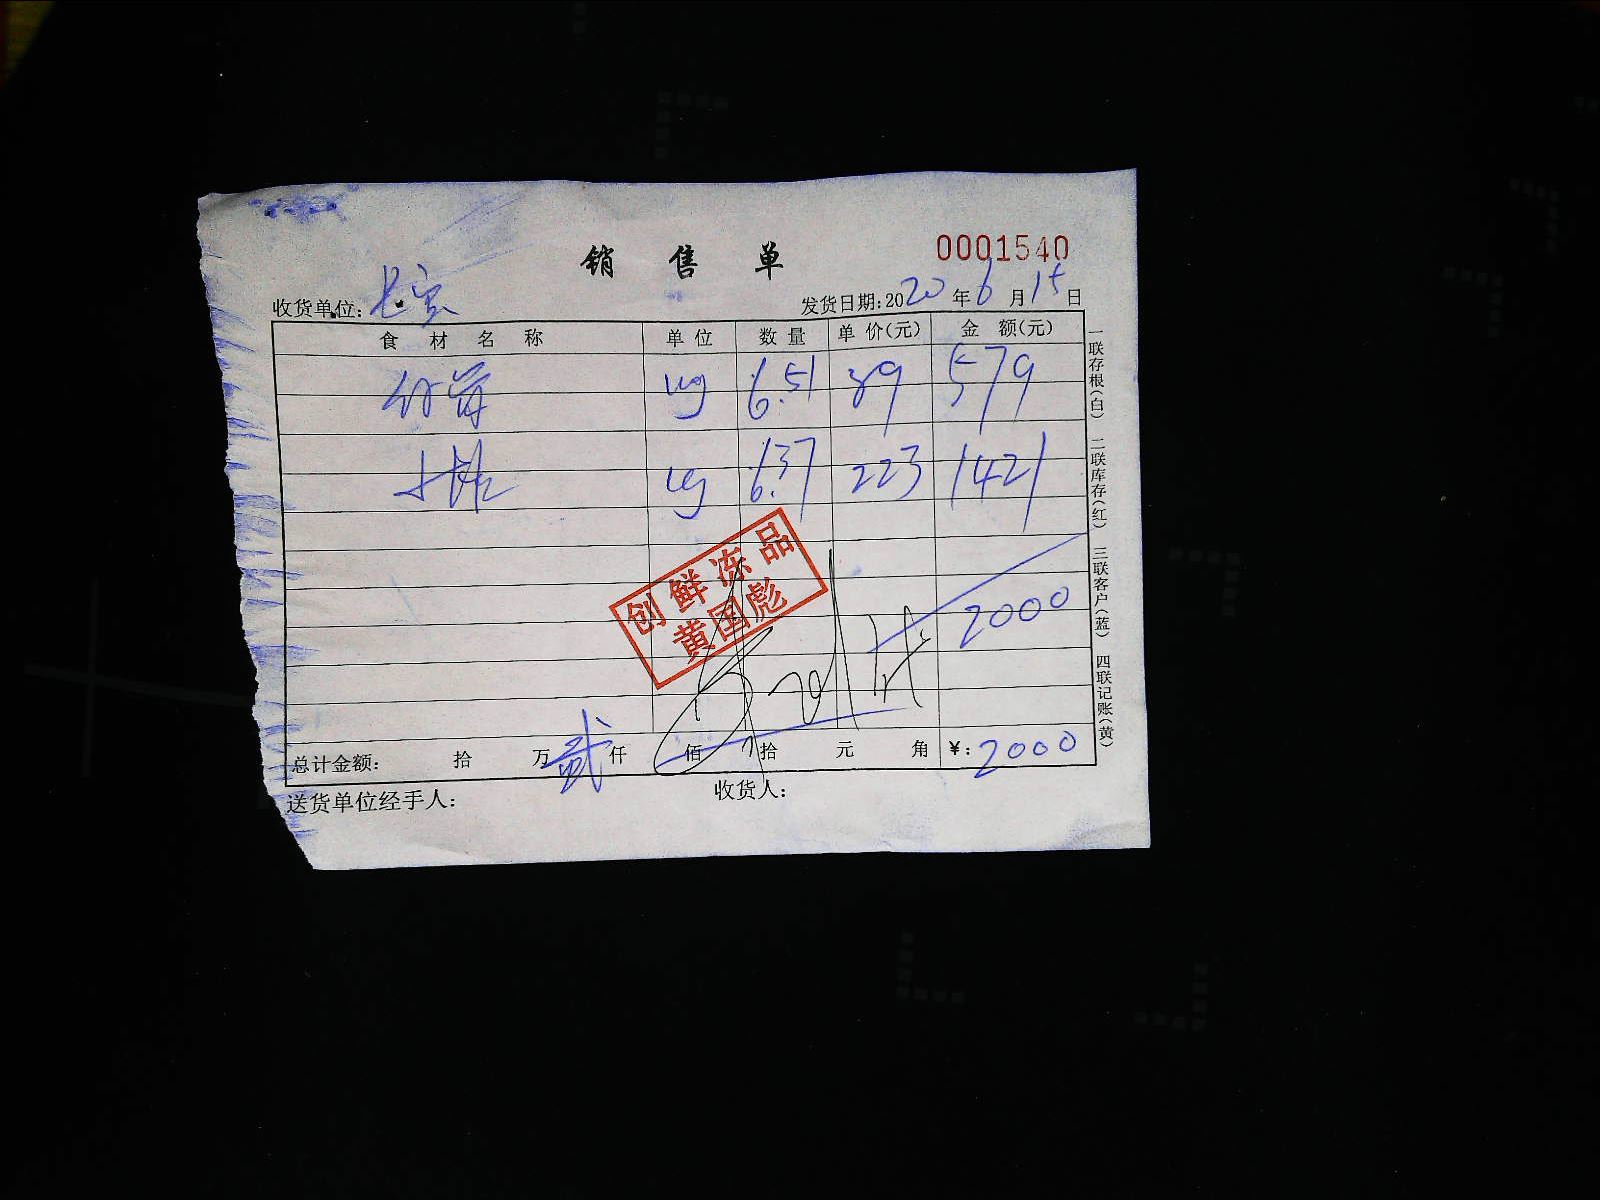 销 售 单
0001540
收货单位:
发货日期:2020年6月15日
食 材 名 称 单 位 数 量 单 价(元) 金 额(元)
6.51 89 579
kg 6.37 223 1421
创鲜冻品
黄国彪
2000
总计金额: 拾 万 贰 仟 佰 拾 元 角 ¥:2000
送货单位经手人: 收货人:
一联存根(白) 二联库存(红) 三联客户(蓝) 四联记账(黄)